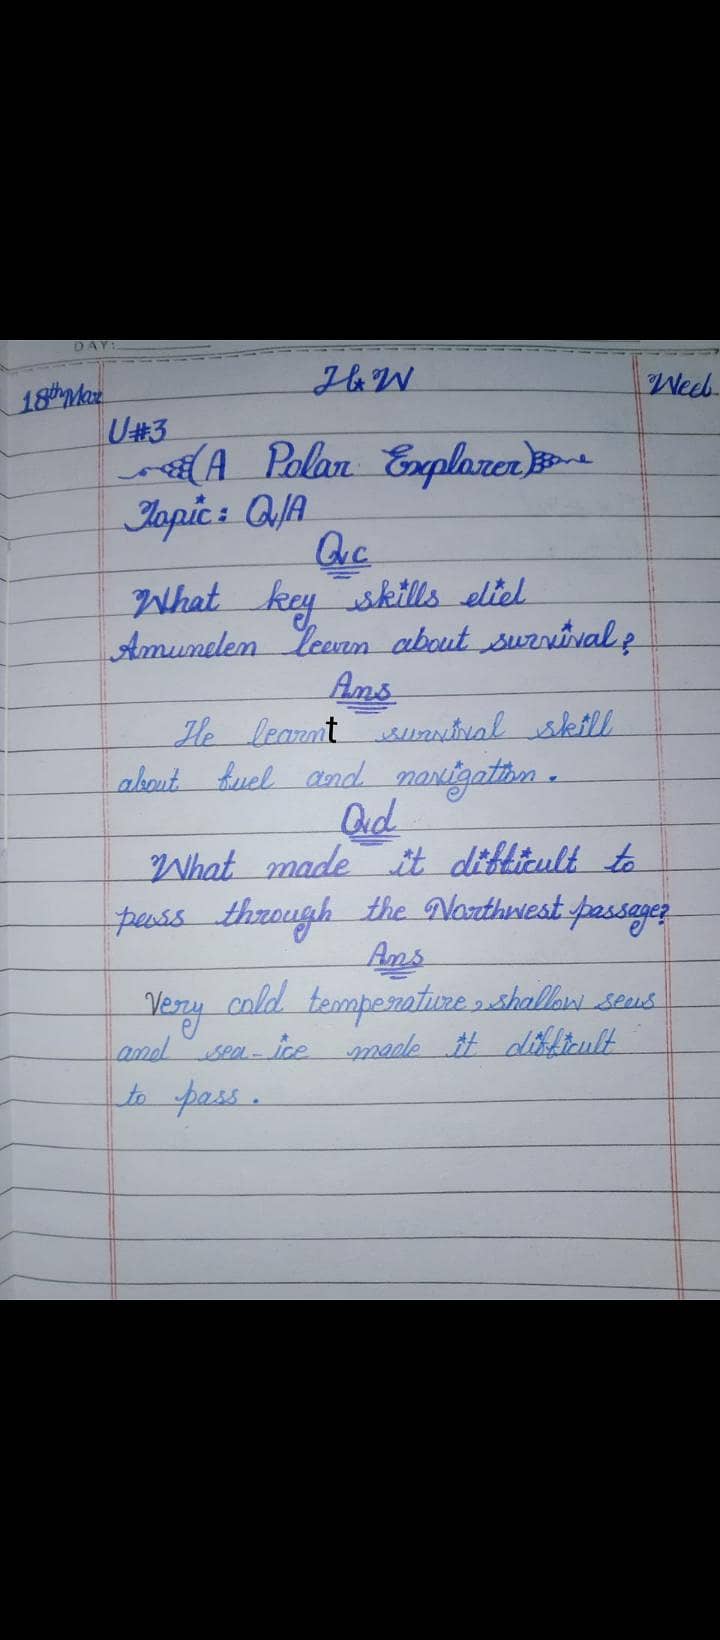 DAY:
H.W
18th Mar
Wed
U#3
(A Polar Explorer)
Topic: Q/A
Q.c
What key skills did
Amunden learn about survival?
Ans
He learnt survival skill
about fuel and navigation.
Q.d
What made it difficult to
pass through the Northwest passage?
Ans
Very cold temperature, shallow seas
and sea-ice made it difficult
to pass.